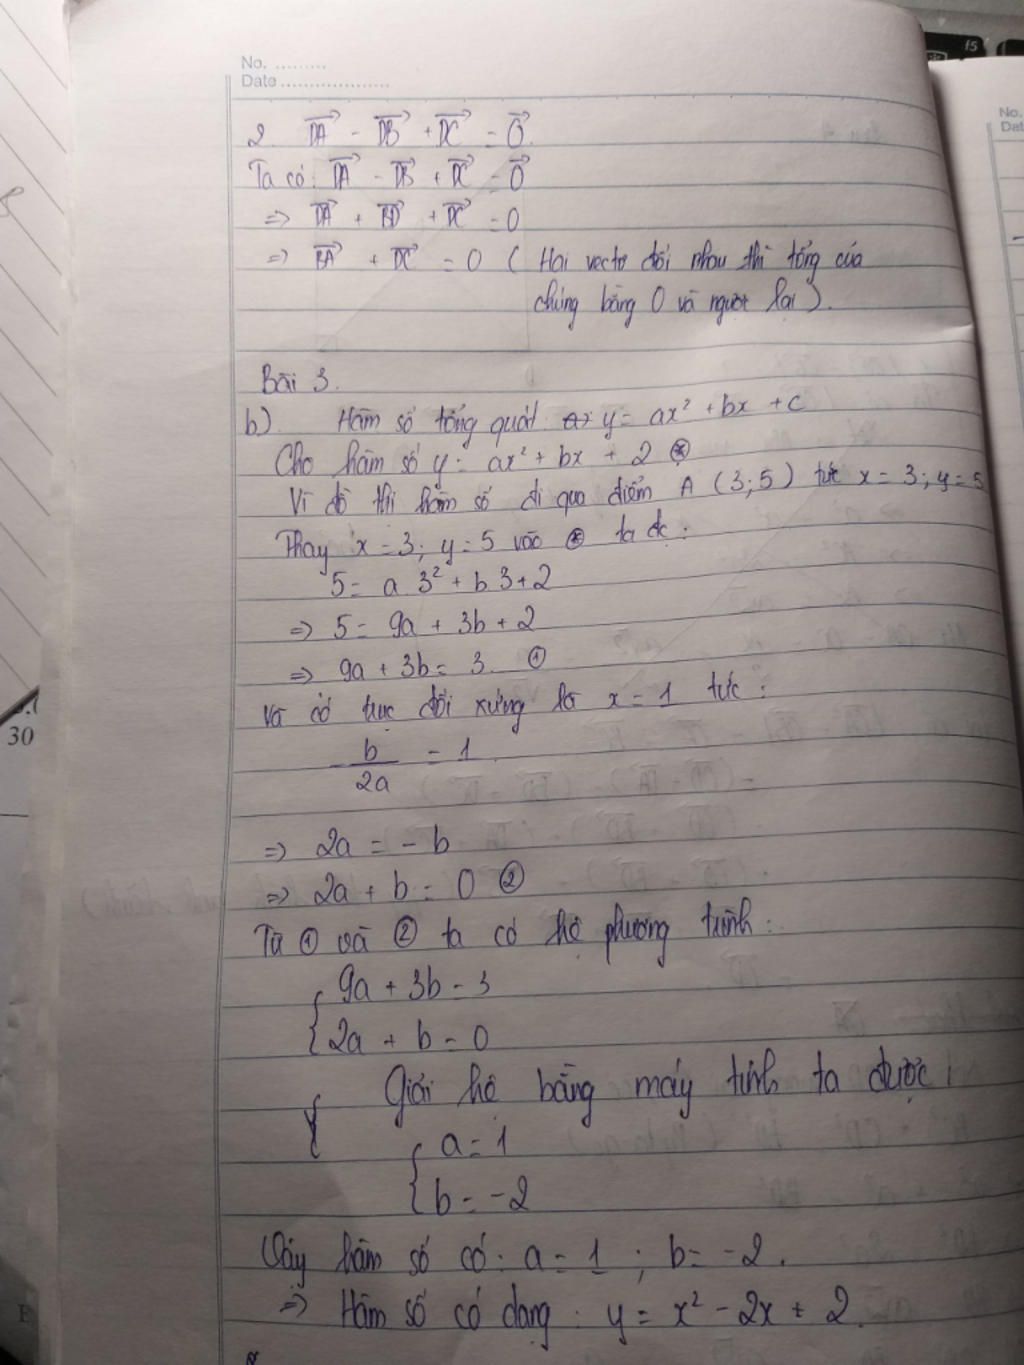 No. .........
Date ...................
2. DA - DB + DC = 0.
Ta có: DA - DB + DC = 0
=> DA + BD + DC = 0
=> BA + DC = 0 ( Hai vectơ đối nhau thì tổng của
chúng bằng 0 và ngược lại ).
Bài 3.
b) Hàm số tổng quát: y = ax² + bx + c
Cho hàm số y = ax² + bx + 2 (*)
Vì đồ thị hàm số đi qua điểm A (3;5) tức x = 3; y = 5
Thay x = 3; y = 5 vào (*) ta đc :
5 = a 3² + b 3 + 2
=> 5 = 9a + 3b + 2
=> 9a + 3b = 3. ①
Và có trục đối xứng là x = 1 tức :
-b/2a = 1
=> 2a = - b
=> 2a + b = 0 ②
Từ ① và ② ta có hệ phương trình :
{ 9a + 3b = 3
{ 2a + b = 0
Giải hệ bằng máy tính ta được :
{ a = 1
{ b = -2
Vậy hàm số có: a = 1 ; b = -2.
=> Hàm số có dạng : y = x² - 2x + 2.
30
f5
No.
Dat
E